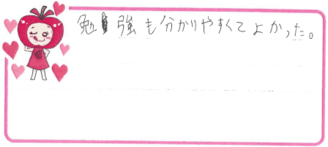 勉強も分かりやすくてよかった。